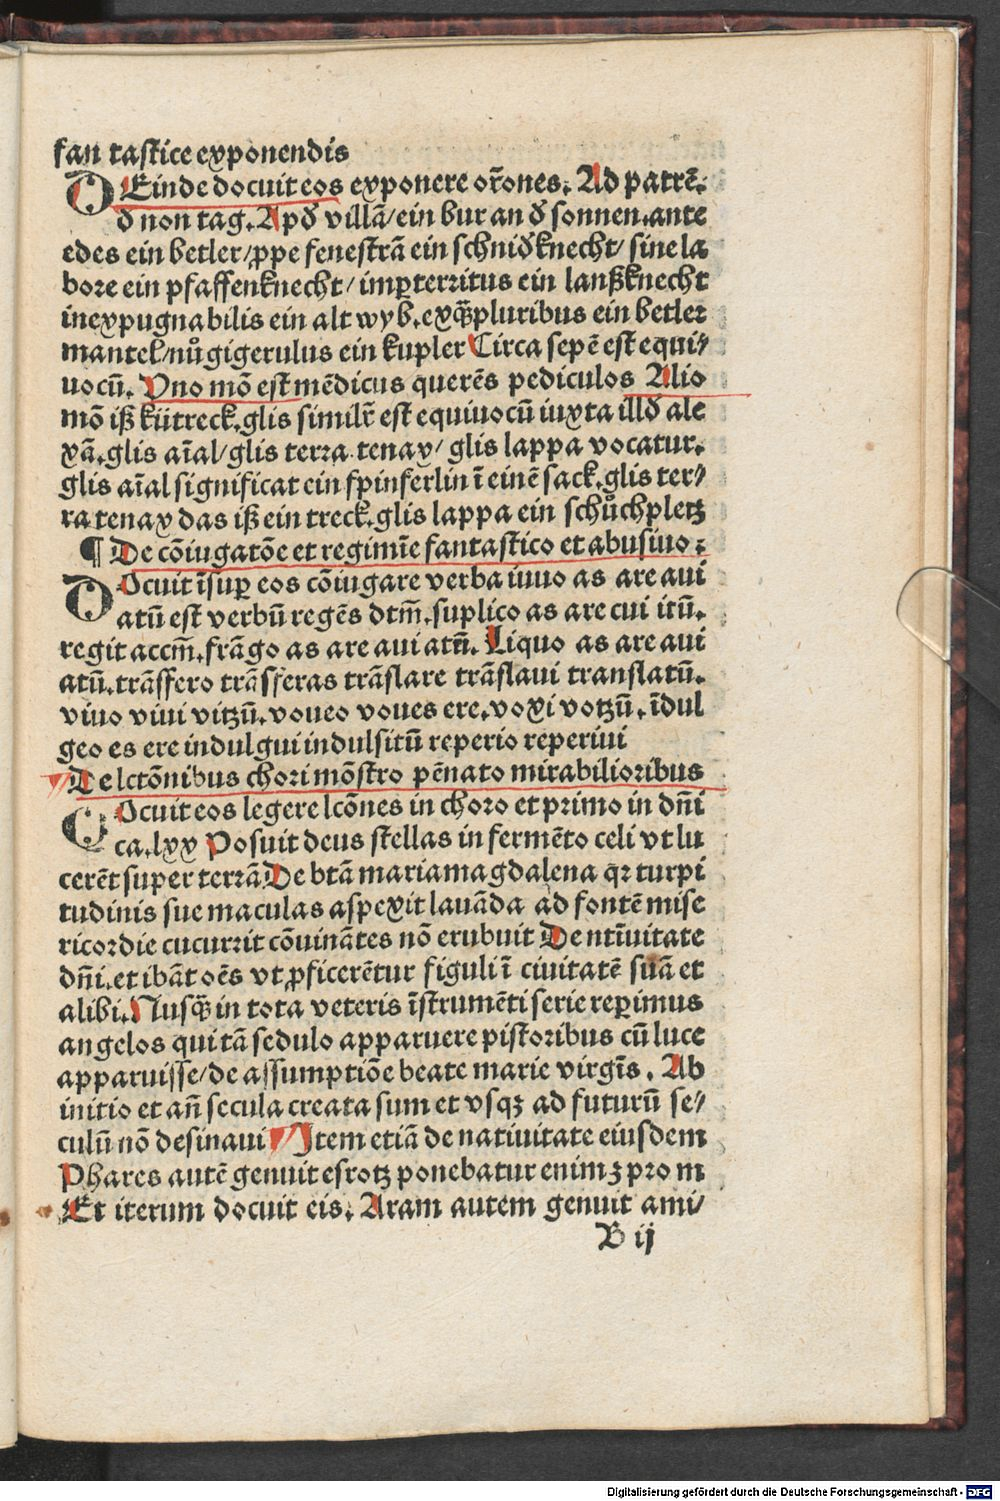 fan tastice exponendis
DEinde docuit eos exponere or̃ones. Ad patrē.
đ non tag. Apđ villā/ein bur an đ sonnen.ante
edes ein betler/ꝓpe fenestrā ein schniđknecht/ sine la
bore ein pfaffenknecht/ imꝑterritus ein lanßknecht
inexpugnabilis ein alt wyb.exq̄pluribus ein betler
mantel/nůgigerulus ein kupler Circa sepē est equi⸗
uocū. Uno mō est mēdicus querēs pediculos Alio
mō iß kütreck.glis simil̃r est equiuocū iuxta illđ ale
xā.glis aīal/glis terra tenax/ glis lappa vocatur.
glis aīal significat ein fpinferlin ī einē sack.glis ter⸗
ra tenax das iß ein treck.glis lappa ein schůchpletz
¶ De cōiugatōe et regimīe fantastico et abusiuo:
DOcuit īsuꝑ eos cōiugare verba iuuo as are aui
atū est verbū regēs dtm̄.suplico as are cui itū.
regit accm̄.frāgo as are aui atn̄. Liquo as are aui
atū.trāsffero trāsferas trāslare trāslaui translatū.
viuo viui vitzū.voueo voues ere.voxi votzū.īdul
geo es ere indulgui indulsitū reperio reperiui
De lctōnibus chori mōstro pēnato mirabilioribus
DOcuit eos legere lcōnes in choro et primo in dn̄i
ca.lxx Posuit deus stellas in fermēto celi vt lu
cerēt super terrā De btā mariamagdalena qꝛ turpi
tudinis sue maculas aspexit lauāda ad fontē mise
ricordie cucurrit cōuinātes nō erubuit De ntīuitate
dn̄i.et ibāt oēs vt ꝓficerētur figuli ī ciuitatē suā et
alibi.Nusq̄ in tota veteris īstrumēti serie reꝑimus
angelos qui tā sedulo apparuere pistoribus cū luce
apparuisse/de assumptiōe beate marie virgīs. Ab
initio et an̄ secula creata sum et vsqꝫ ad futurū se⸗
culū nō desinaui Item etiā de natiuitate eiusdem
Phares autē genuit esrotz ponebatur enim ꝫ pro m
Et iterum docuit eis. Aram autem genuit ami⸗
B ij
Digitalisierung gefördert durch die Deutsche Forschungsgemeinschaft - DFG